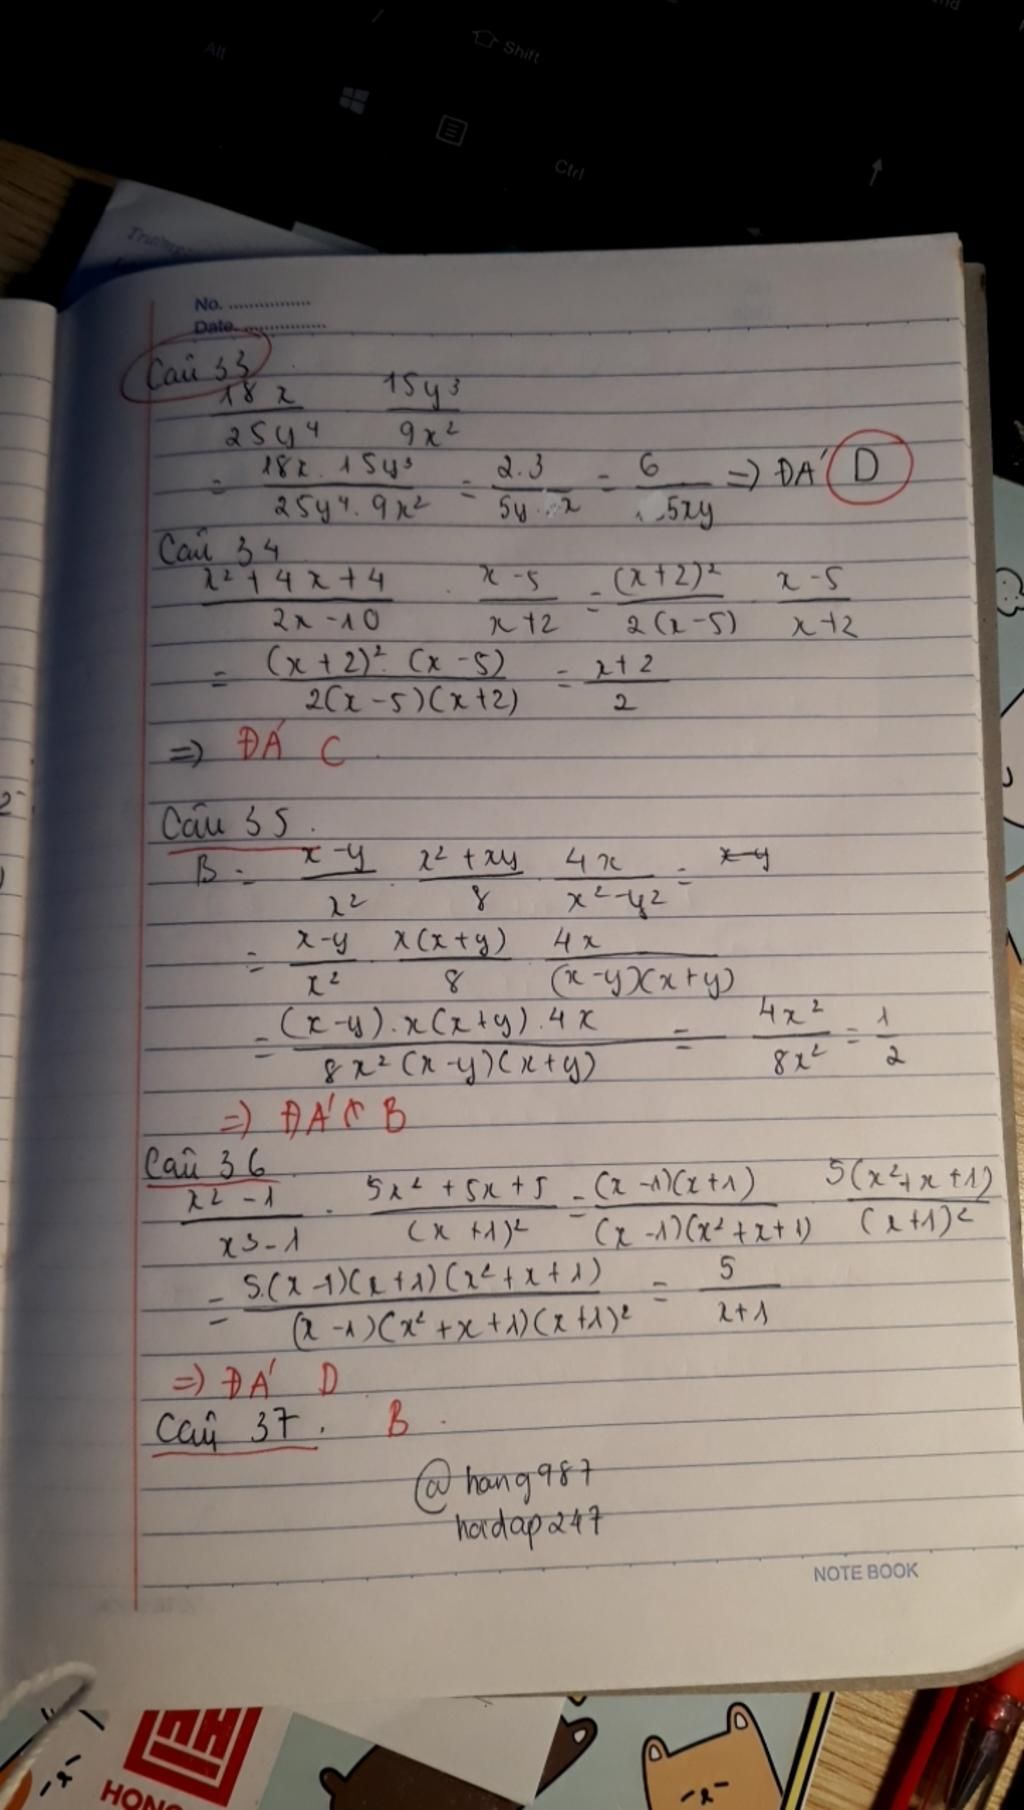 Alt
Shift
Ctrl
No. ................
Date. ................
Câu 33
18x/25y⁴ 15y³/9x²
= 18x . 15y³/25y⁴ . 9x² = 2.3/5y x = 6/5xy => ĐÁ D
Câu 34
x² + 4x + 4/2x - 10 . x - 5/x + 2 = (x + 2)²/2(x - 5) x - 5/x + 2
= (x + 2)² . (x - 5)/2(x - 5)(x + 2) = x + 2/2
=> ĐÁ C
Câu 35.
B = x - y/x² . x² + xy/8 . 4x/x² - y² = x - y
= x - y/x² x(x + y)/8 4x/(x - y)(x + y)
= (x - y) . x(x + y) . 4x/8x² (x - y)(x + y) = 4x²/8x² = 1/2
=> ĐÁ B
Câu 36
x² - 1/x3 - 1 . 5x² + 5x + 5/(x + 1)² = (x - 1)(x + 1)/(x - 1)(x² + x + 1) 5(x² + x + 1)/(x + 1)²
= 5.(x - 1)(x + 1)(x² + x + 1)/(x - 1)(x² + x + 1)(x + 1)² = 5/x + 1
=> ĐÁ D
Câu 37. B.
@hang987
hoidap247
NOTE BOOK
HONG